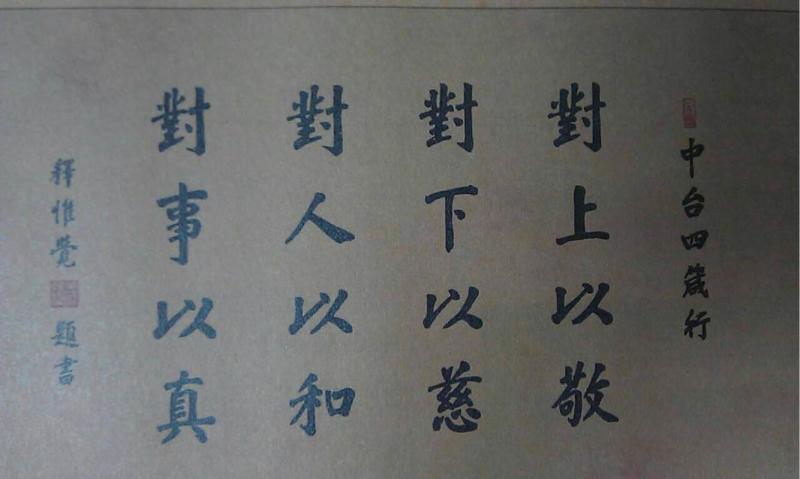 中台四箴行
對上以敬
對下以慈
對人以和
對事以真
釋惟覺 題書